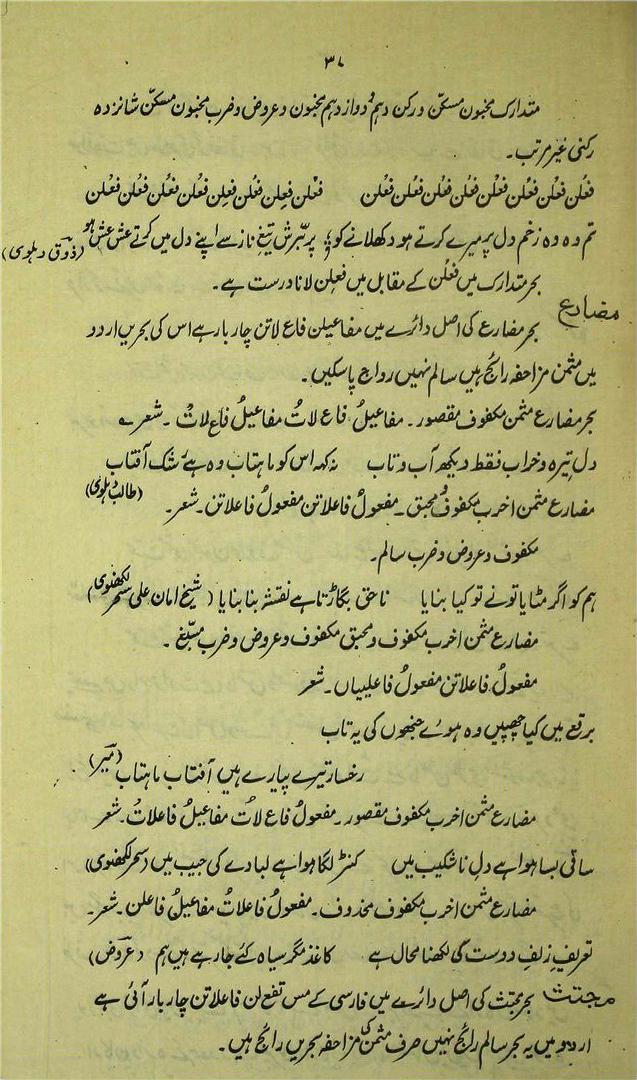 ۳۷
متدارک مخبون مسکّن و رکن دہم و دوازدہم مخبون و عروض و ضرب مخبون مسکّن شانزدہ
رکنی غیر مرتب۔
فعْلن فعْلن فعْلن فعْلن فعْلن فعْلن فعْلن فعْلن فعْلن فعِلن فعْلن فعِلن فعْلن فعْلن فعْلن فعْلن
تم وہ وہ زخم دل پر میرے کرتے ہو دکھلانے کو پر بُرّشِ تیغِ ناز سے اپنے دل میں کرتے عش عش ہو (ذوقؔ دہلوی)
بحر متدارک میں فعْلن کے مقابل میں فعِلن لانا درست ہے۔
مضارع
بحر مضارع کی اصل دائرے میں مفاعیلن فاع لاتن چار بار ہے اس کی بحریں اردو
میں مثمن مزاحفہ رائج ہیں سالم نہیں رواج پا سکیں۔
بحر مضارع مثمن مکفوف مقصور۔ مفاعیلُ فاع لاتُ مفاعیلُ فاع لاتْ۔ شعر؎
دل تیرہ و خراب نقط دیکھ آب و تاب نہ کہہ اس کو ماہتاب وہ ہے رشک آفتاب
(طالب دہلوی)
مضارع مثمن اخرب مکفوف محبق۔ مفعولُ فاعلاتن مفعولُ فاعلاتن۔ شعر۔
مکفوف و عروض و ضرب سالم۔
ہم کو اگر مٹایا تو نے تو کیا بنایا ناحق بگاڑتا ہے نقشہ بنا بنایا (شیخ امان علی سحرؔ لکھنوی)
مضارع مثمن اخرب مکفوف و محبق مکفوف و عروض و ضرب مسبّغ۔
مفعولُ فاعلاتن مفعولُ فاعلییاں۔ شعر
برقع میں کیا چھپیں وہ ہوئے جنھوں کی یہ تاب
رخسار تیرے پیارے ہیں آفتاب ماہتاب (میرؔ)
مضارع مثمن اخرب مکفوف مقصور۔ مفعولُ فاع لاتُ مفاعیلُ فاعلاتْ۔ شعر
ساقی بسا ہوا ہے دلِ ناشکیب میں کنٹر لگا ہوا ہے لبادے کی جیب میں (سحر لکھنوی)
مضارع مثمن اخرب مکفوف محذوف۔ مفعولُ فاعلاتُ مفاعیلُ فاعلن۔ شعر۔
تعریفِ زلفِ دوست کی لکھنا محال ہے کاغذ مگر سیاہ کئے جا رہے ہیں ہم (عروضؔ)
مجتث
بحر مجتث کی اصل دائرے میں فارسی کے مس تفع لن فاعلاتن چار بار آئی ہے
اردو میں یہ بحر سالم رائج نہیں صرف مثمن کی مزاحفہ بحریں رائج ہیں۔